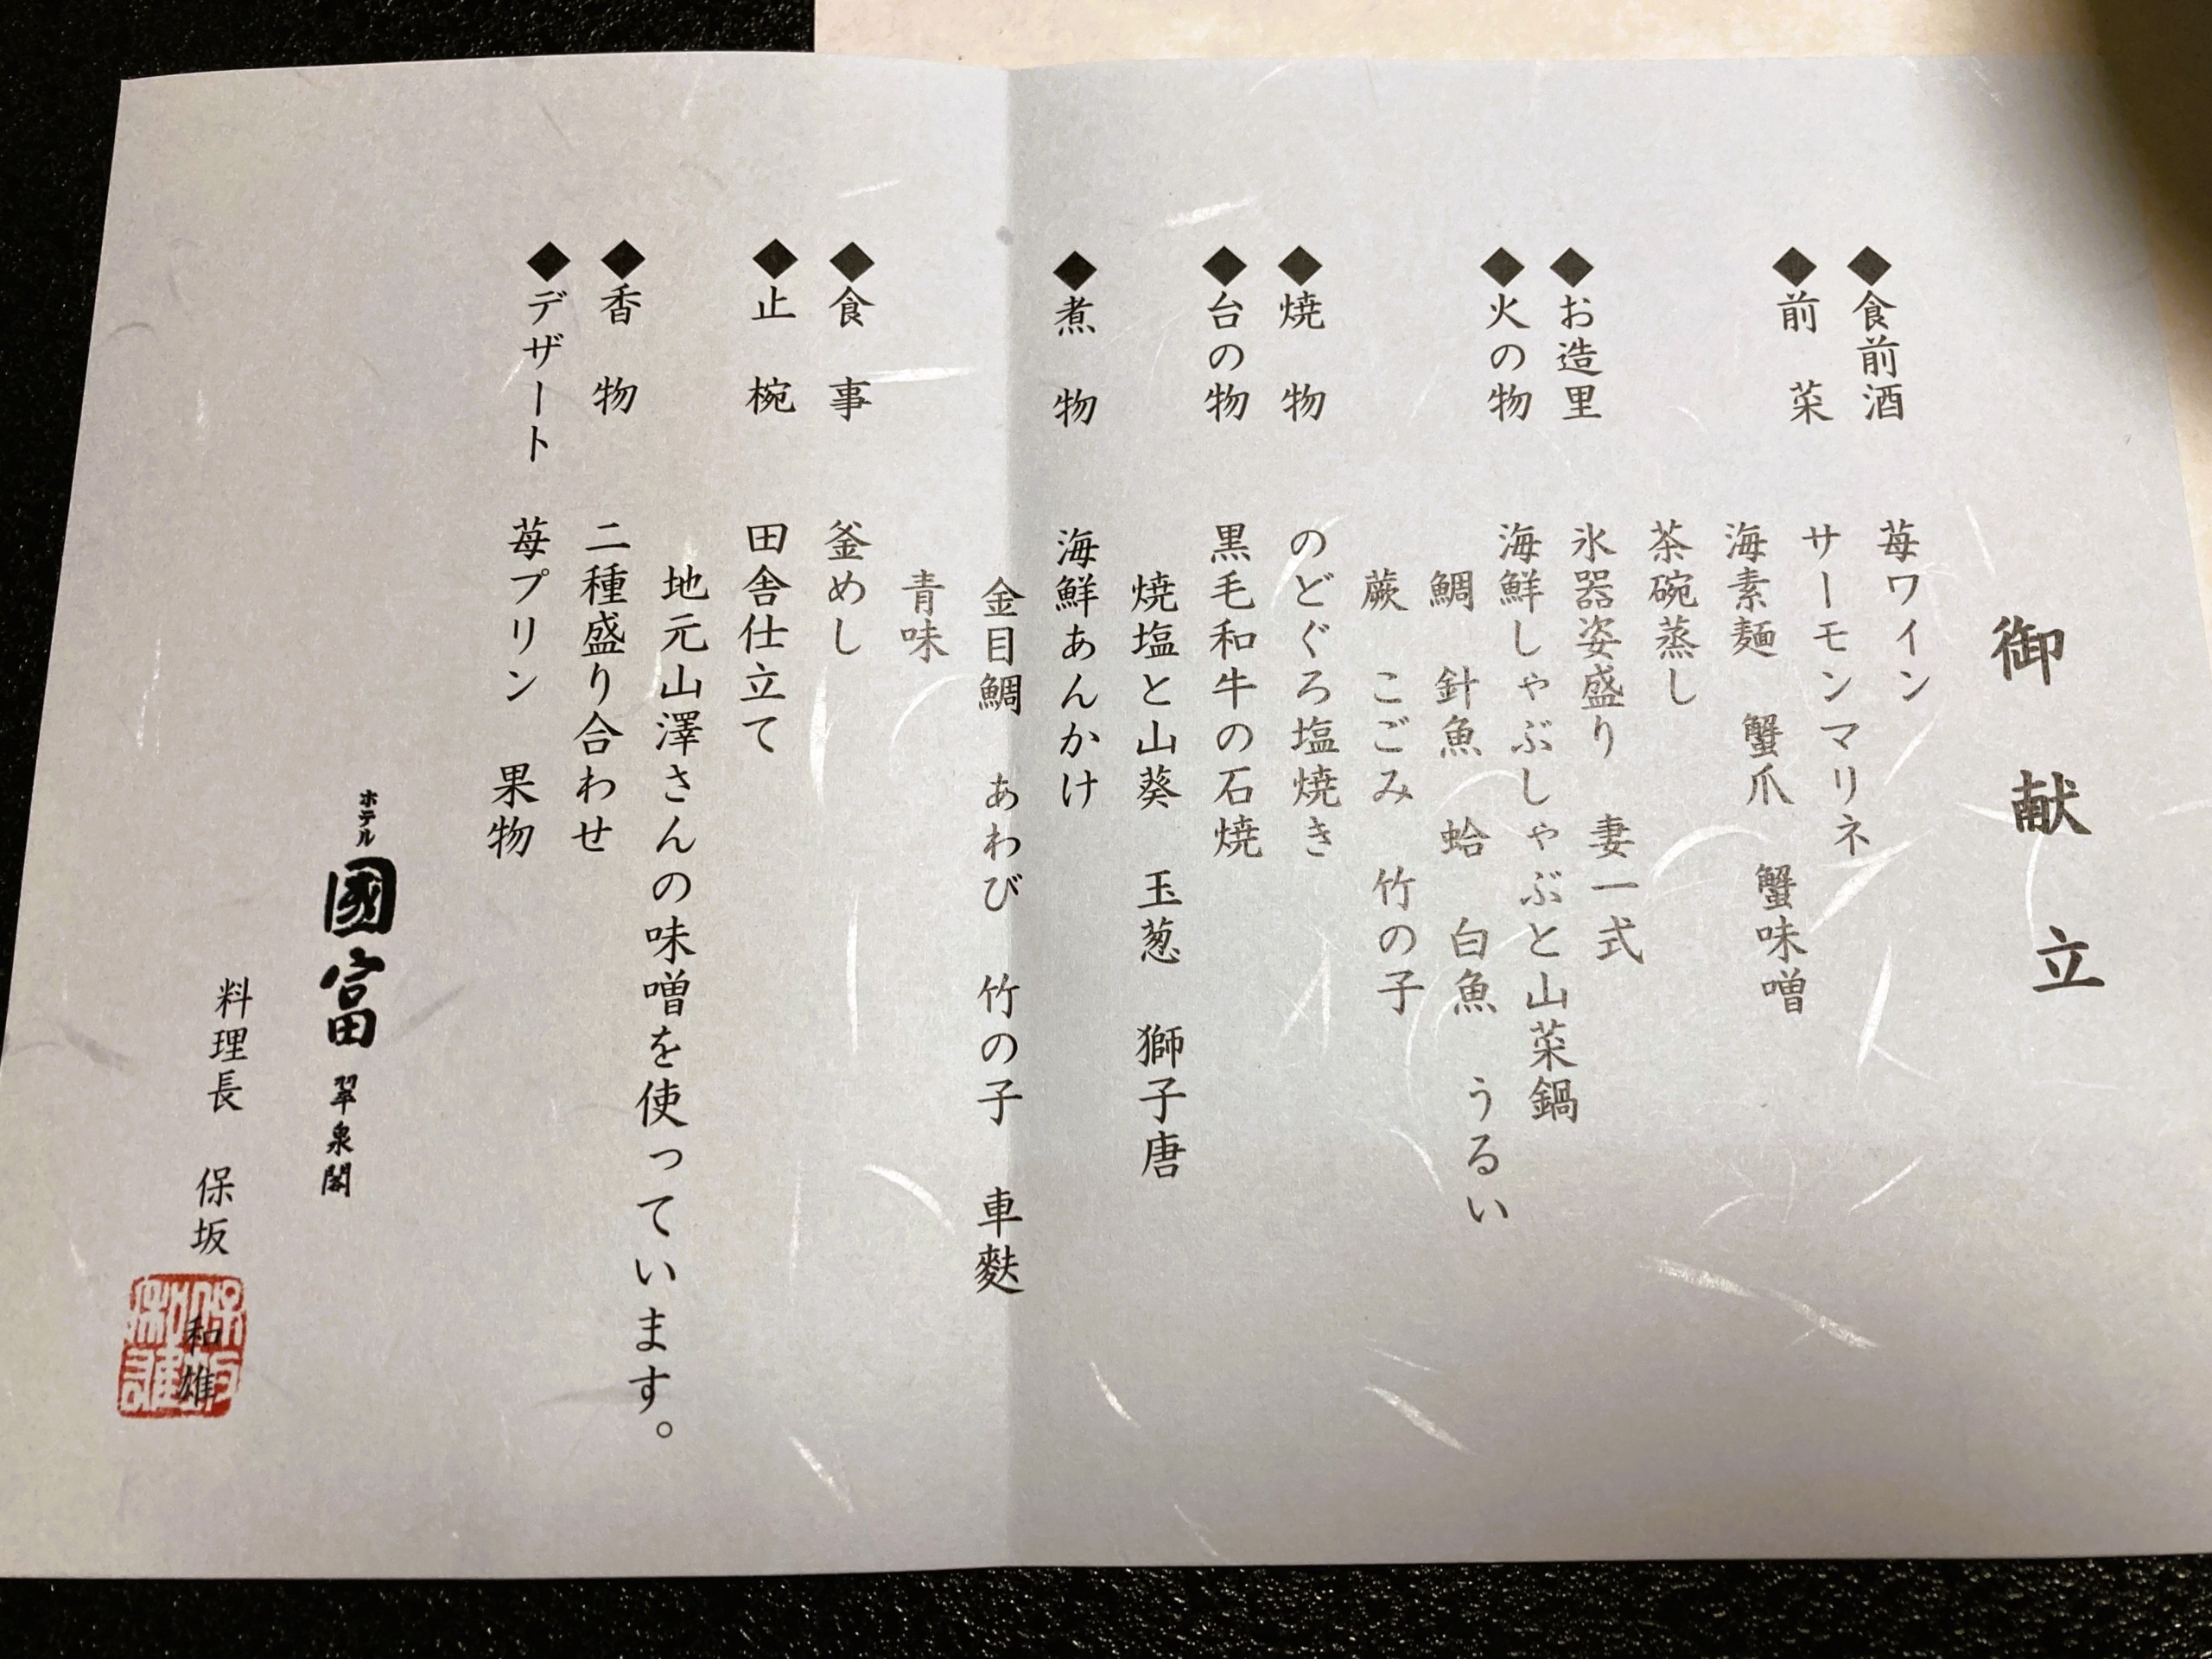 御献立
◆食前酒　苺ワイン
◆前　菜　サーモンマリネ
海素麺　蟹爪　蟹味噌
茶碗蒸し
◆お造里　氷器姿盛り　妻一式
◆火の物　海鮮しゃぶしゃぶと山菜鍋
鯛　針魚　蛤　白魚　うるい
蕨　こごみ　竹の子
◆焼　物　のどぐろ塩焼き
◆台の物　黒毛和牛の石焼
焼塩と山葵　玉葱　獅子唐
◆煮　物　海鮮あんかけ
金目鯛　あわび　竹の子　車麩
青味
◆食　事　釜めし
◆止　椀　田舎仕立て
地元山澤さんの味噌を使っています。
◆香　物　二種盛り合わせ
◆デザート　苺プリン　果物
ホテル國富 翠泉閣
料理長　保坂　和雄